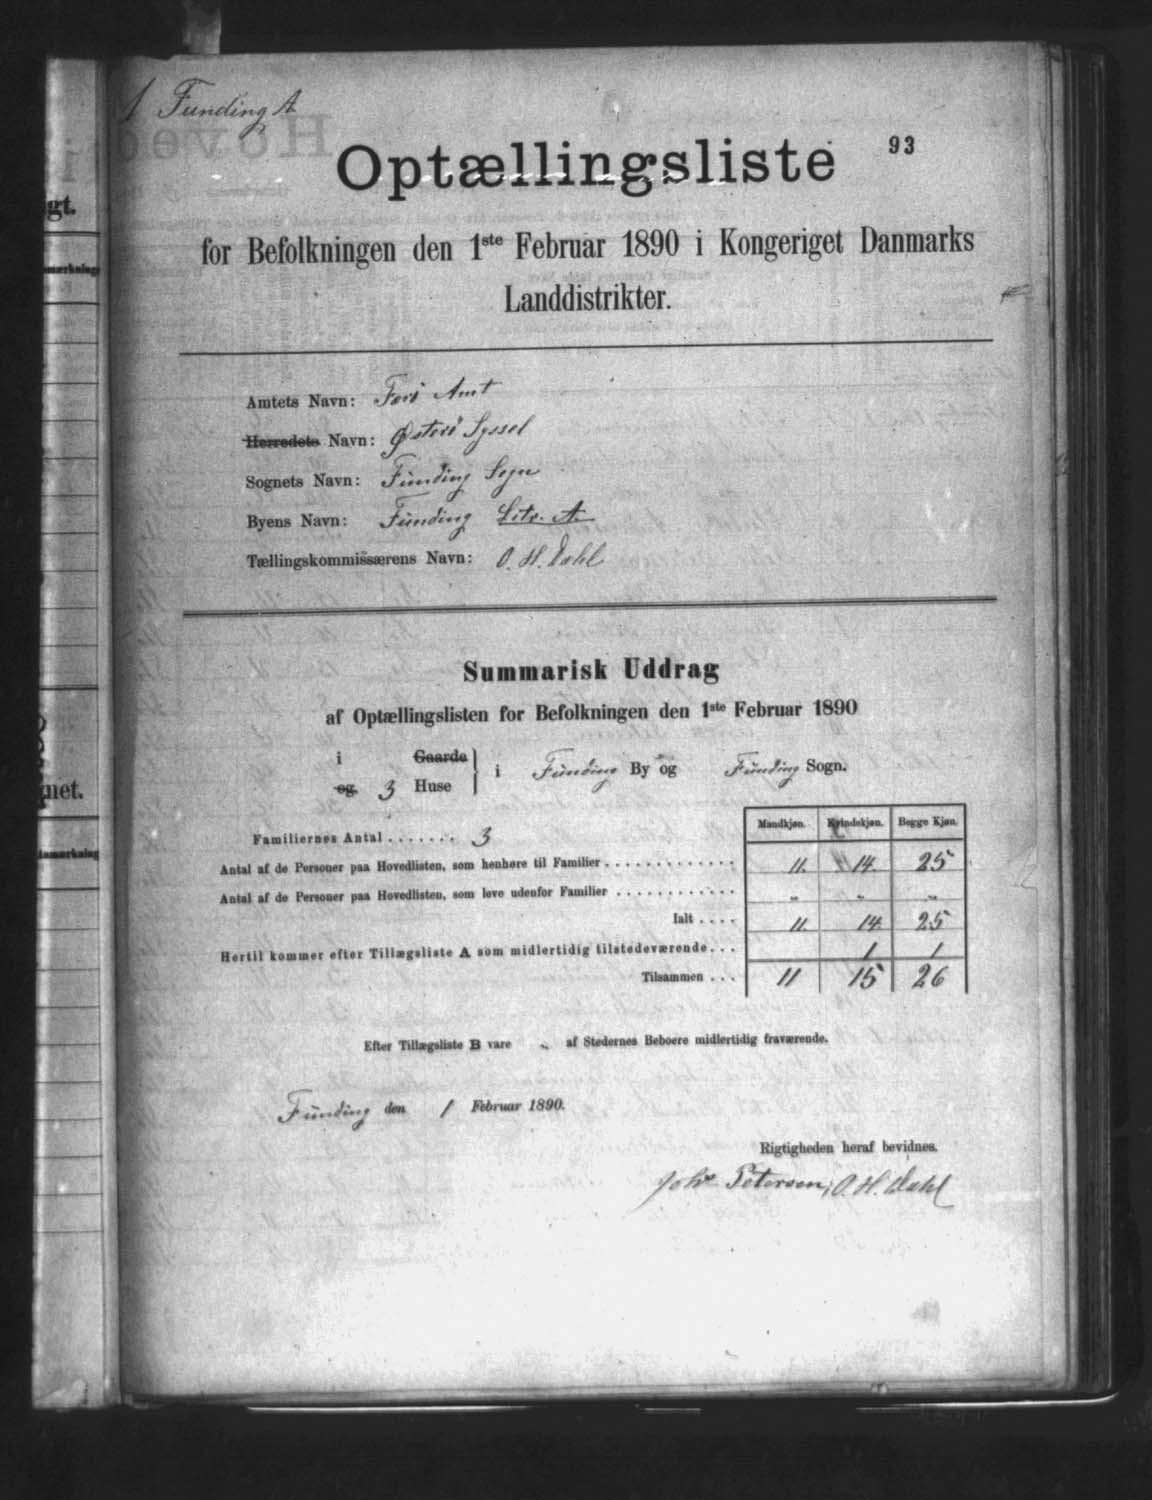 1 Funding A
93
Optællingsliste
for Befolkningen den 1ste Februar 1890 i Kongeriget Danmarks
Landdistrikter.
Amtets Navn: Færö Amt
Herredets Navn: Østerö Syssel
Sognets Navn: Funding Sogn
Byens Navn: Funding Litr. A.
Tællingskommissærens Navn: O. H. Dahl
Summarisk Uddrag
af Optællingslisten for Befolkningen den 1ste Februar 1890
i Gaarde
og 3 Huse
i Funding By og Funding Sogn.
Mandkjøn. Kvindekjøn. Begge Kjøn.
Familiernes Antal . . . . . . . 3
Antal af de Personer paa Hovedlisten, som henhøre til Familier . . . . . . . . . . . . . 11. 14. 25
Antal af de Personer paa Hovedlisten, som leve udenfor Familier . . . . . . . . . . . . " " "
Ialt . . . . 11. 14. 25
Hertil kommer efter Tillægsliste A som midlertidig tilstedeværende . . . 1 1
Tilsammen . . . 11 15 26
Efter Tillægsliste B vare " af Stedernes Beboere midlertidig fraværende.
Funding den 1 Februar 1890.
Rigtigheden heraf bevidnes.
Johs Petersen, O. H. Dahl
gt.
net.